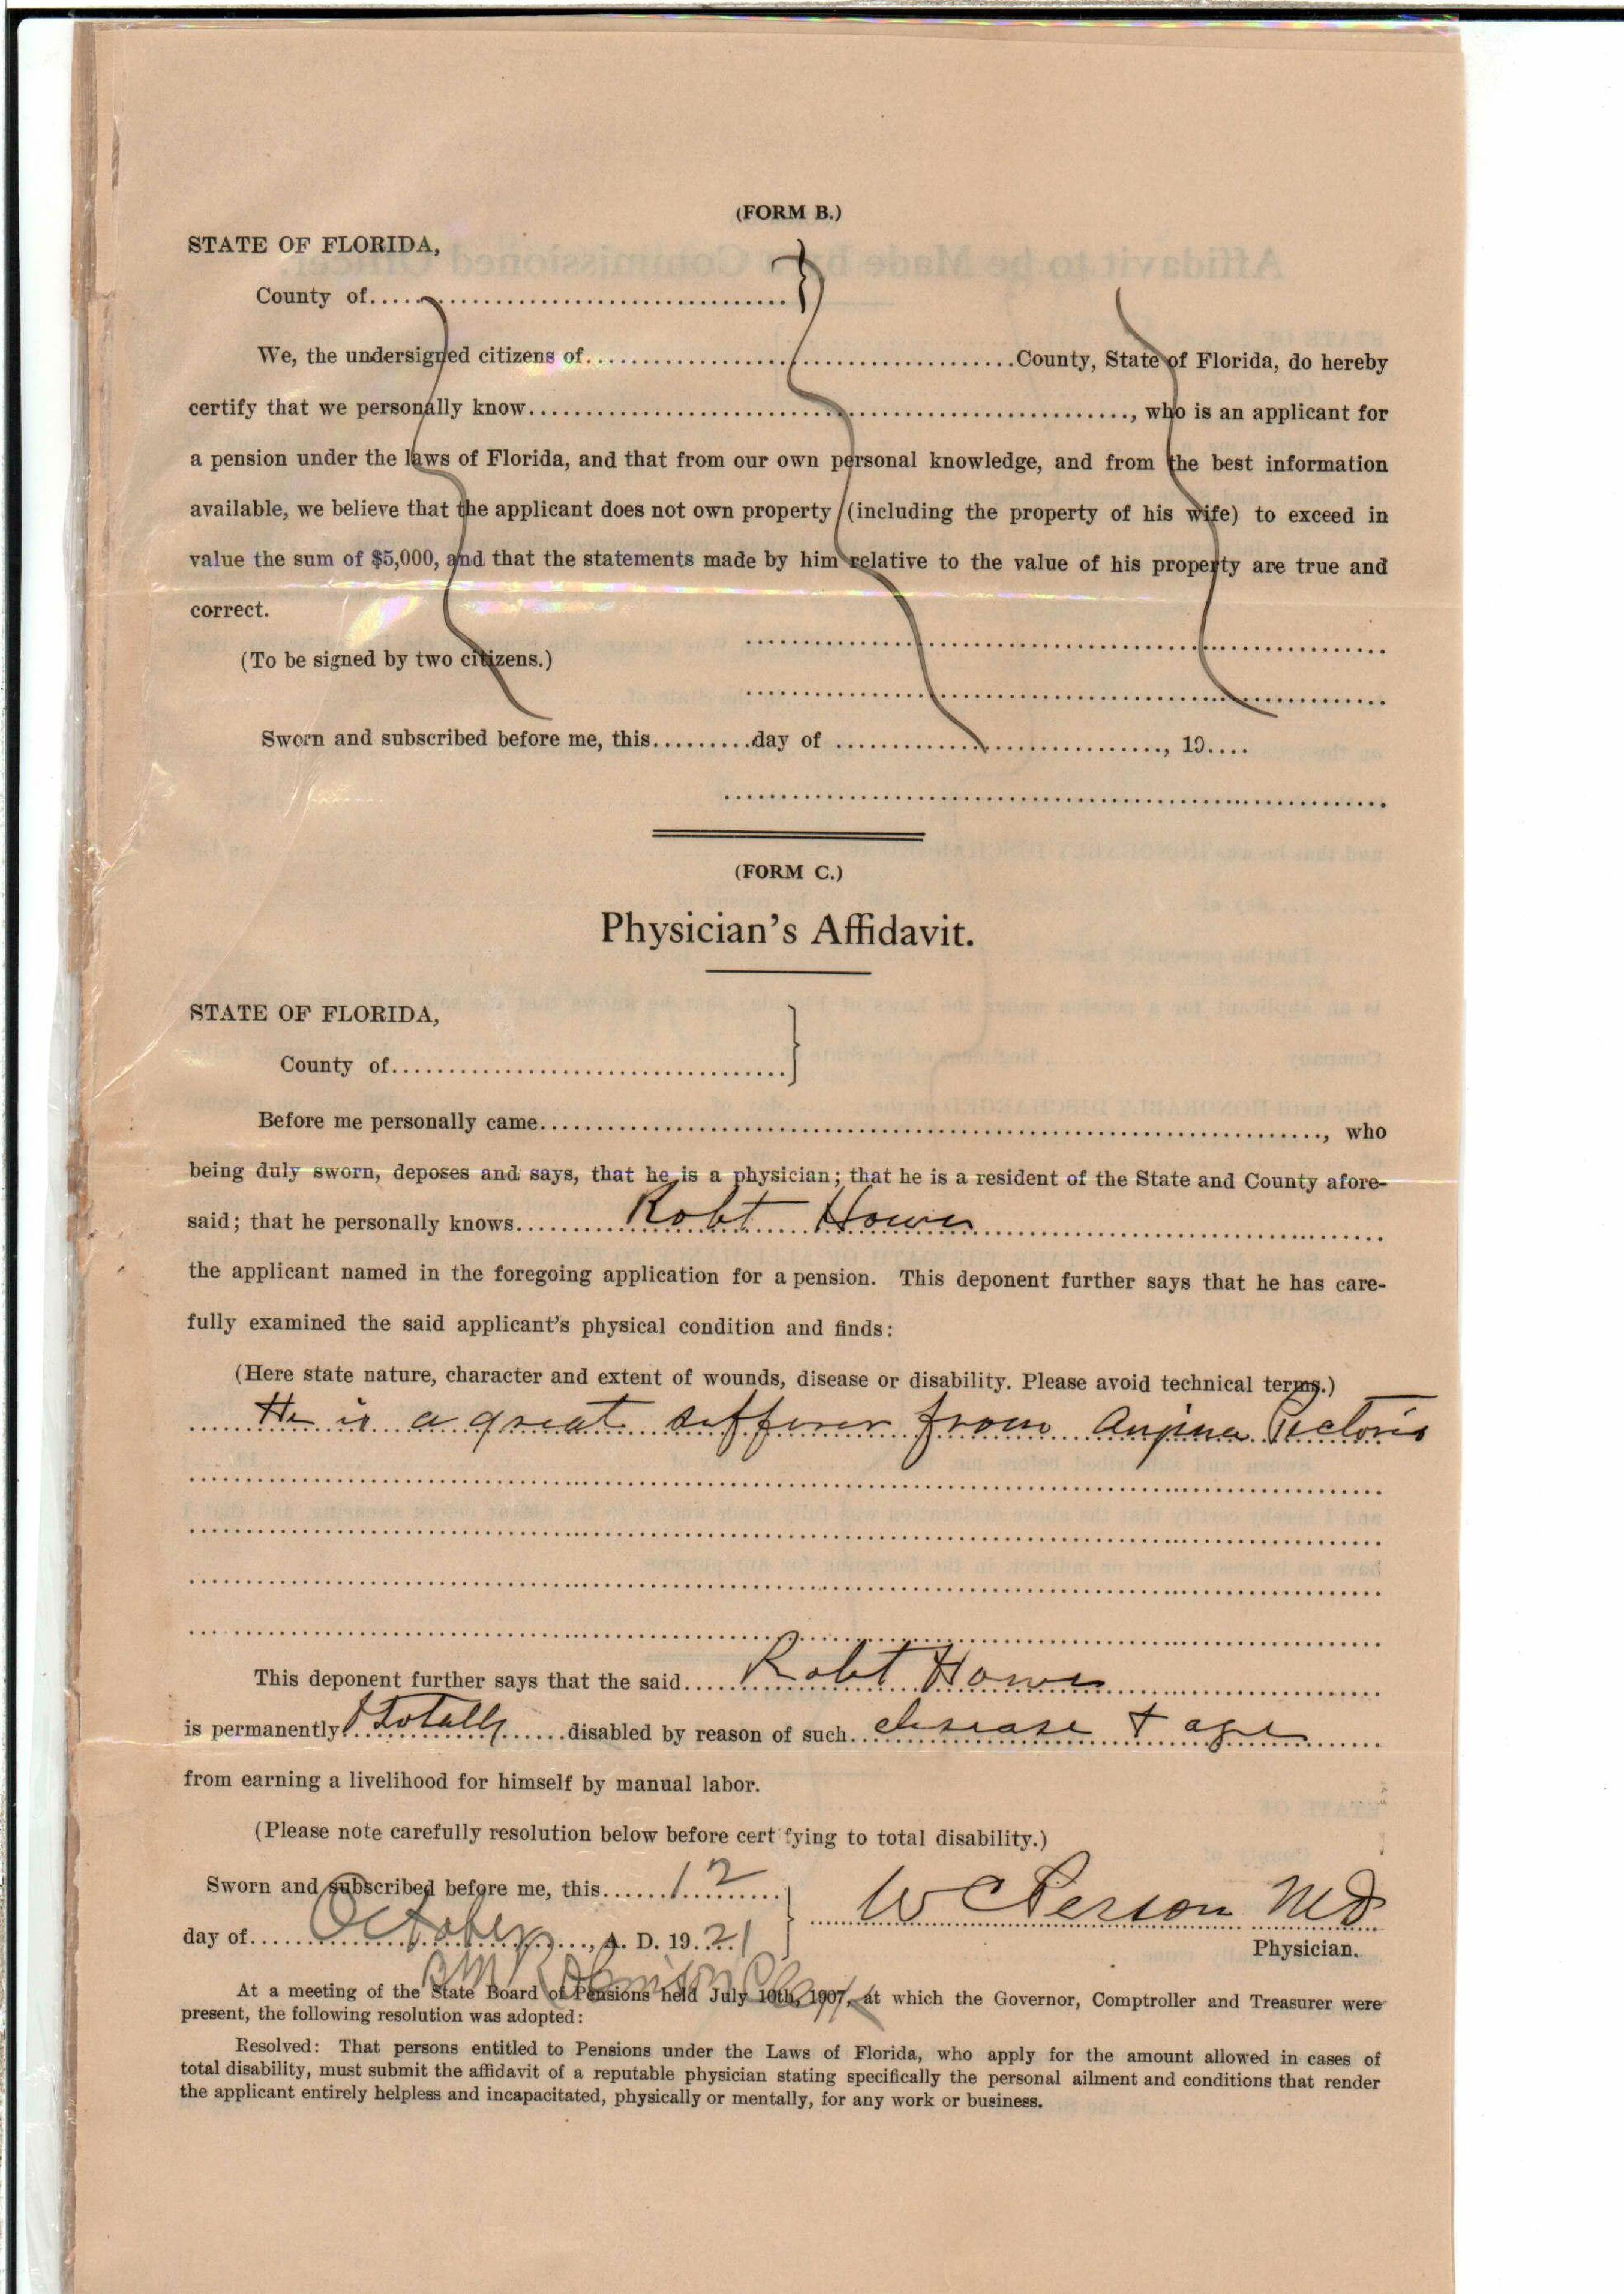 (FORM B.)
STATE OF FLORIDA,
County of........................................}
We, the undersigned citizens of........................................County, State of Florida, do hereby
certify that we personally know........................................, who is an applicant for
a pension under the laws of Florida, and that from our own personal knowledge, and from the best information
available, we believe that the applicant does not own property (including the property of his wife) to exceed in
value the sum of $5,000, and that the statements made by him relative to the value of his property are true and
correct.
(To be signed by two citizens.)
Sworn and subscribed before me, this..........day of ........................................, 19....
(FORM C.)
Physician's Affidavit.
STATE OF FLORIDA,
County of........................................}
Before me personally came........................................, who
being duly sworn, deposes and says, that he is a physician; that he is a resident of the State and County afore-
said; that he personally knows.......... Robt Howe
the applicant named in the foregoing application for a pension. This deponent further says that he has care-
fully examined the said applicant's physical condition and finds:
(Here state nature, character and extent of wounds, disease or disability. Please avoid technical terms.)
He is a great sufferer from Angina Pectoris
This deponent further says that the said..... Robt Howe
is permanently & totally ......disabled by reason of such.. disease + age
from earning a livelihood for himself by manual labor.
(Please note carefully resolution below before cert fying to total disability.)
Sworn and subscribed before me, this...... 12
day of..... October ...., A. D. 19. 21
W C Person MD
Physician.
At a meeting of the State Board of Pensions held July 10th, 1907, at which the Governor, Comptroller and Treasurer were
present, the following resolution was adopted:
Resolved: That persons entitled to Pensions under the Laws of Florida, who apply for the amount allowed in cases of
total disability, must submit the affidavit of a reputable physician stating specifically the personal ailment and conditions that render
the applicant entirely helpless and incapacitated, physically or mentally, for any work or business.